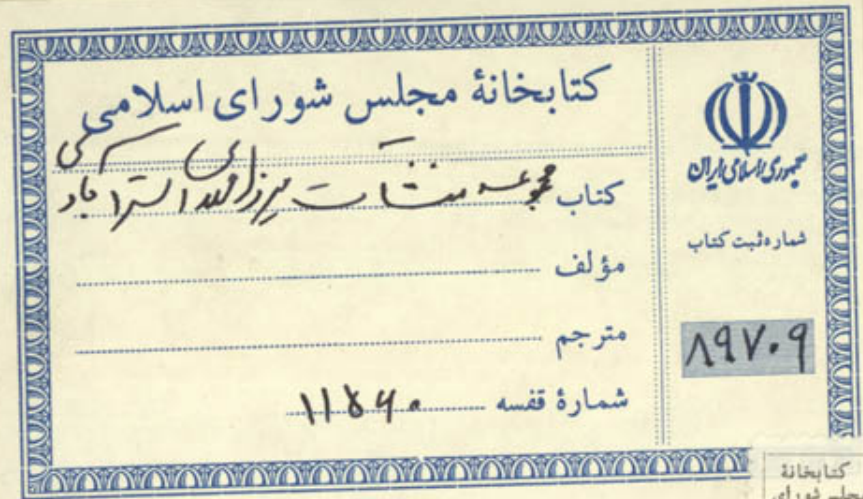 کتابخانهٔ مجلس شورای اسلامی
کتاب مجموعه منشآت میرزا مهدی استرآبادی
مؤلف
مترجم
شمارهٔ قفسه ۱۱۵۶۰
جمهوری اسلامی ایران
شمارهٔ ثبت کتاب
۸۹۷۰۹
کتابخانهٔ
مجلس شورای